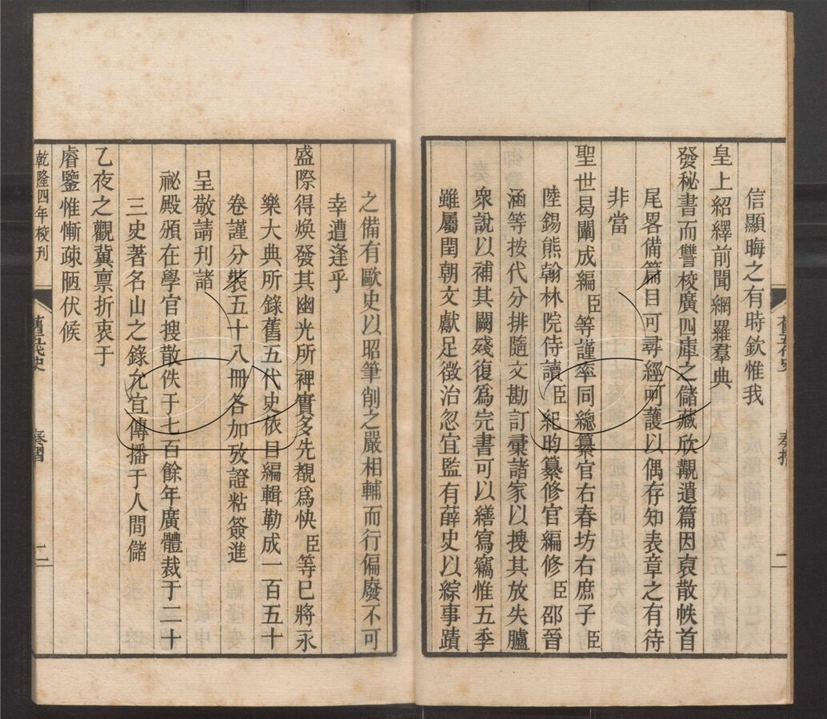 信顯晦之有時欽惟我
皇上紹繹前聞網羅羣典
發秘書而讐校廣四庫之儲藏欣覯遺篇因裒散帙首
尾畧備篇目可尋經呵護以偶存知表章之有待
非當
聖世曷闡成編臣等謹率同總纂官右春坊右庶子臣
陸錫熊翰林院侍讀臣紀昀纂修官編修臣邵晉
涵等按代分排隨文勘訂彚諸家以搜其放失臚
衆說以補其闕殘復爲完書可以繕寫竊惟五季
雖屬閏朝文獻足徵治忽宜監有薛史以綜事蹟
之備有歐史以昭筆削之嚴相輔而行偏廢不可
幸遭逢乎
盛際得煥發其幽光所裨實多先覩爲快臣等已將永
樂大典所錄舊五代史依目編輯勒成一百五十
卷謹分裝五十八冊各加攷證粘簽進
呈敬請刊諸
祕殿頒在學官搜散佚于七百餘年廣體裁于二十
三史著名山之錄允宜傳播于人間儲
乙夜之觀冀禀折衷于
睿鑒惟慚疎陋伏候
乾隆四年校刊
舊五代史
奏摺
二